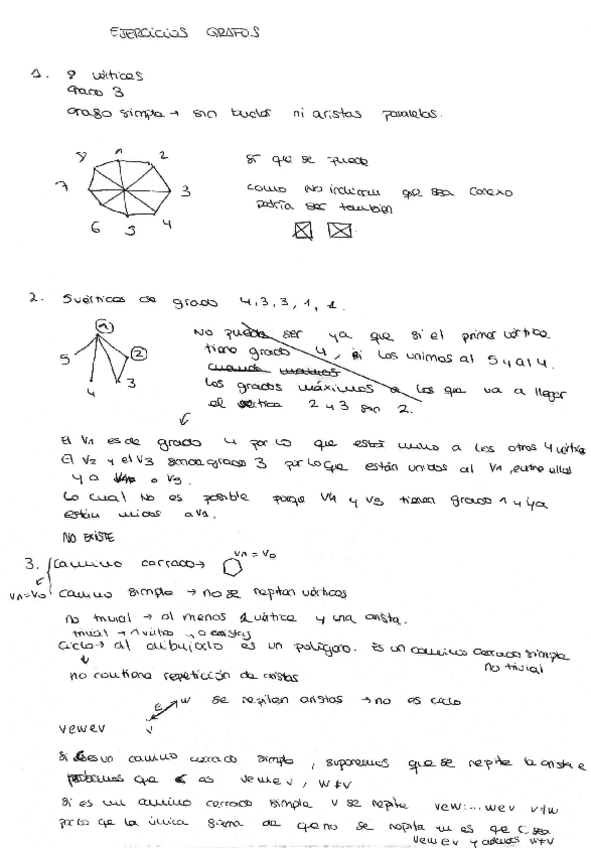 EJERCICIOS GRAFOS
1. 8 vértices
Grado 3
Grafo simple → sin bucles ni aristas paralelas.
8 1 2
7 3
6 5 4
Sí que se puede
como no indican que sea conexo
podría ser también
2. 5 vértices de grado 4, 3, 3, 1, 1.
1
5 2
4 3
No puede ser ya que si el primer vértice
tiene grado 4, si los unimos al 5 y al 4.
los grados máximos a los que va a llegar
el vértice 2 y 3 son 2.
El V1 es de grado 4 por lo que está unido a los otros 4
El V2 y el V3 son de grado 3 por lo que están unidos al V1, entre ellos
y a o V5.
Lo cual no es posible porque V4 y V5 tienen grado 1 y ya
están unidos a V1.
NO EXISTE
3. camino cerrado → V1 = V0
V1=V0 camino simple → no se repiten vértices
no trivial → al menos 1 vértice y una arista.
trivial → 1 vértice y 0 aristas
Ciclo → al dibujarlo es un polígono. Es un camino cerrado simple
no trivial
no contiene repetición de aristas
e w se repiten aristas → no es ciclo
vewev v
Si es un camino cerrado simple, suponemos que se repite la arista e
que es vewev, w≠v
Si es un camino cerrado simple v se repite vew....wev v≠w
por lo que la única forma de que no se repita w es que C sea
vewev y w≠v